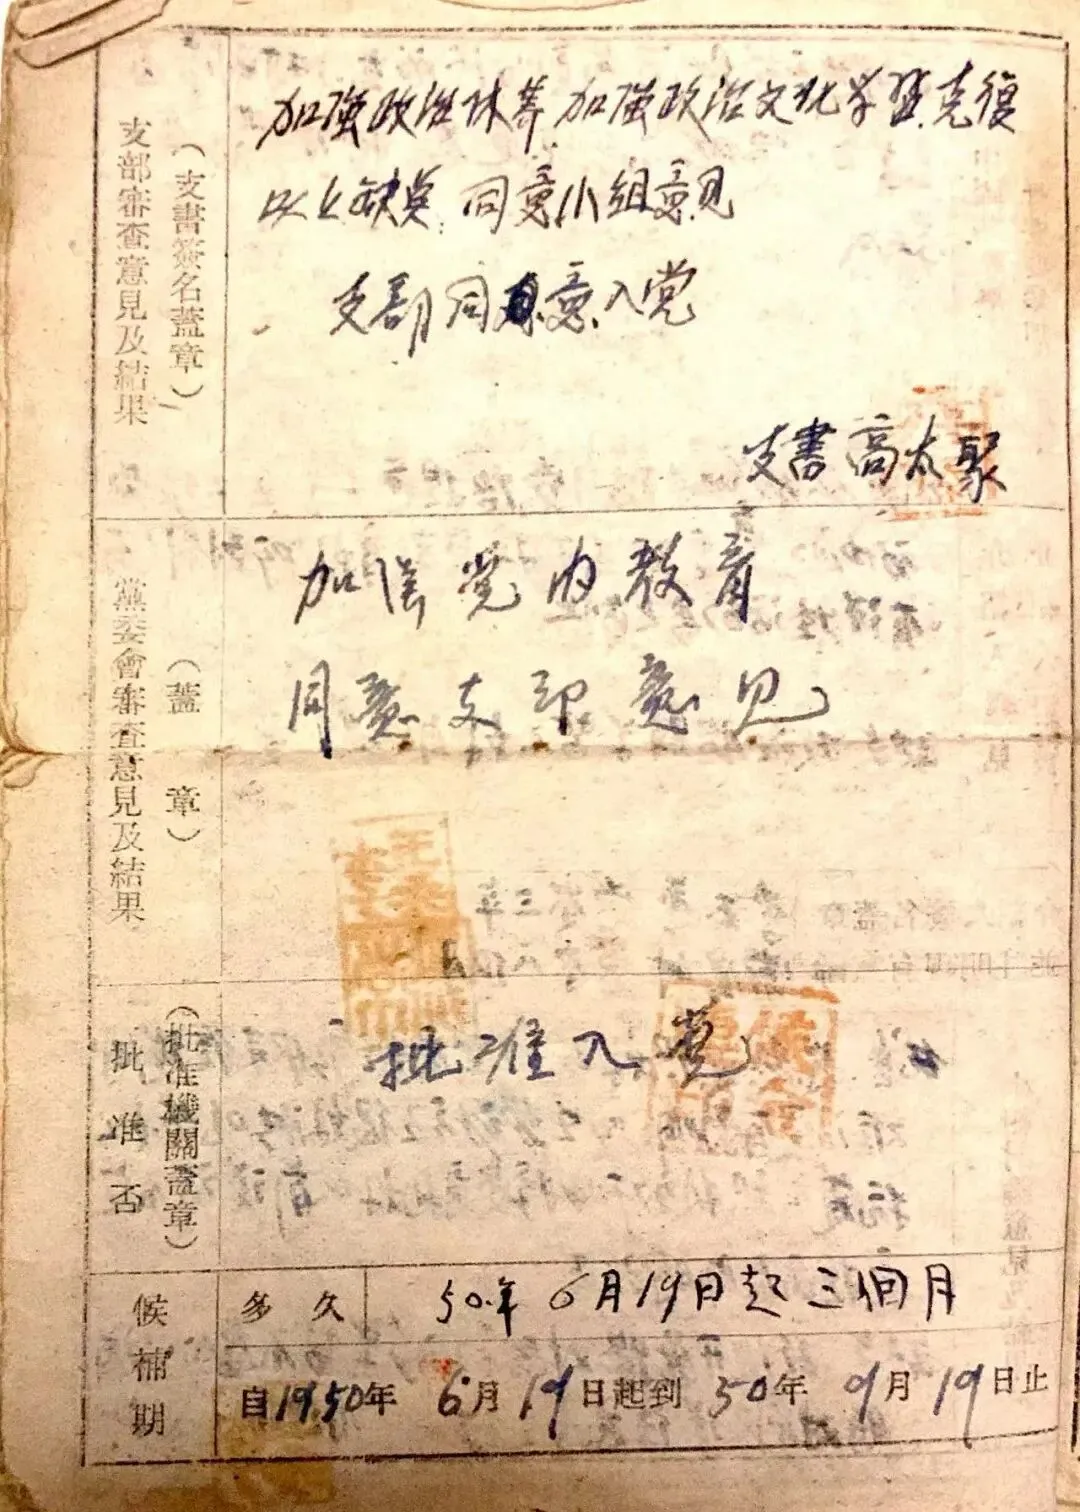 支部審查意見及結果
（支書簽名蓋章）
加强政治休养 加强政治文化学習克復
以上缺点 同意小組意見
支部同意入党
支書高太聚
黨委會審查意見及結果
（蓋章）
加强党内教育
同意支部意见
批准否
（批准機關蓋章）
批準入党
候補期
多久
50年6月19日起三個月
自1950年6月19日起到50年9月19日止